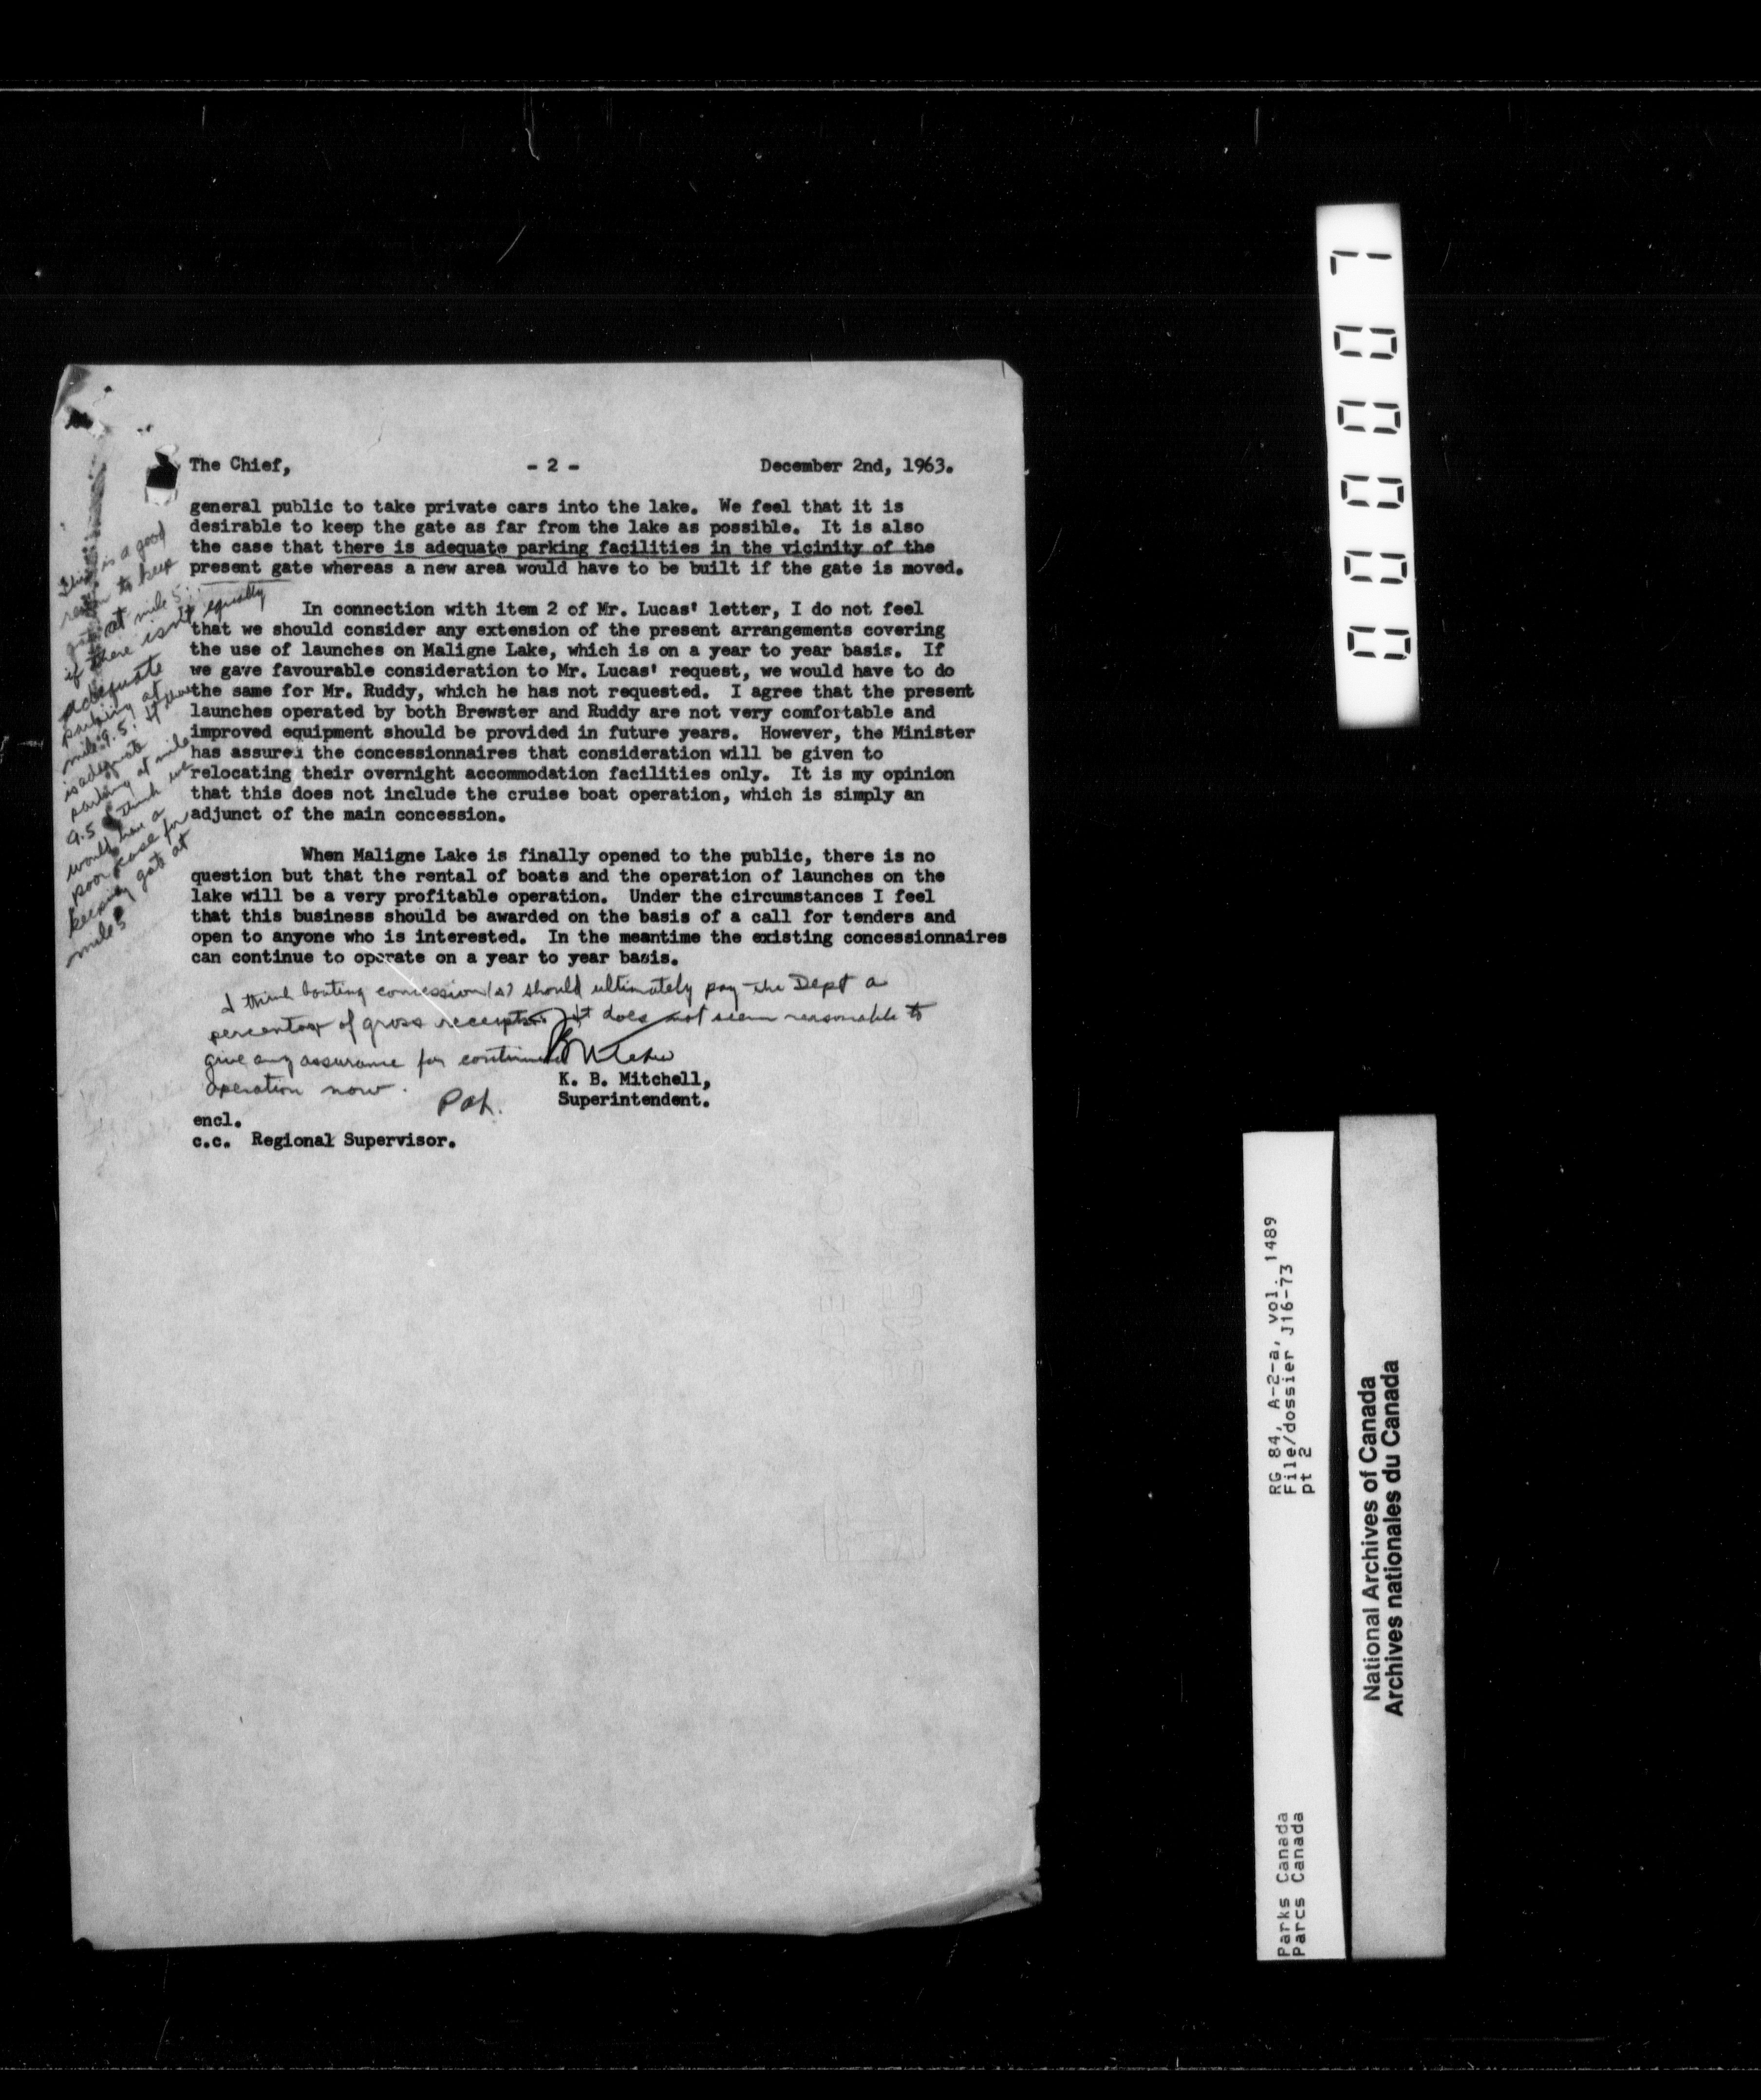 The Chief, - 2 - December 2nd, 1963.
general public to take private cars into the lake. We feel that it is
desirable to keep the gate as far from the lake as possible. It is also
the case that there is adequate parking facilities in the vicinity of the
present gate whereas a new area would have to be built if the gate is moved.
In connection with item 2 of Mr. Lucas' letter, I do not feel
that we should consider any extension of the present arrangements covering
the use of launches on Maligne Lake, which is on a year to year basis. If
we gave favourable consideration to Mr. Lucas' request, we would have to do
the same for Mr. Ruddy, which he has not requested. I agree that the present
launches operated by both Brewster and Ruddy are not very comfortable and
improved equipment should be provided in future years. However, the Minister
has assured the concessionnaires that consideration will be given to
relocating their overnight accommodation facilities only. It is my opinion
that this does not include the cruise boat operation, which is simply an
adjunct of the main concession.
When Maligne Lake is finally opened to the public, there is no
question but that the rental of boats and the operation of launches on the
lake will be a very profitable operation. Under the circumstances I feel
that this business should be awarded on the basis of a call for tenders and
open to anyone who is interested. In the meantime the existing concessionnaires
can continue to operate on a year to year basis.
This is a good
reason to keep
gate at mile 5
if there isn't equally
adequate
parking at
mile 9.5. If there
is adequate
parking at mile
9.5 I think we
would have a
poor case for
keeping gate at
mile 5
I think boating concession(s) should ultimately pay the Dept a
percentage of gross receipts. It does not seem reasonable to
give any assurance for continued
operation now.
K. B. Mitchell,
Superintendent.
encl.
c.c. Regional Supervisor.
000007
RG 84, A-2-a, vol. 1489
File/dossier J16-73
pt 2
Parks Canada
Parcs Canada
National Archives of Canada
Archives nationales du Canada